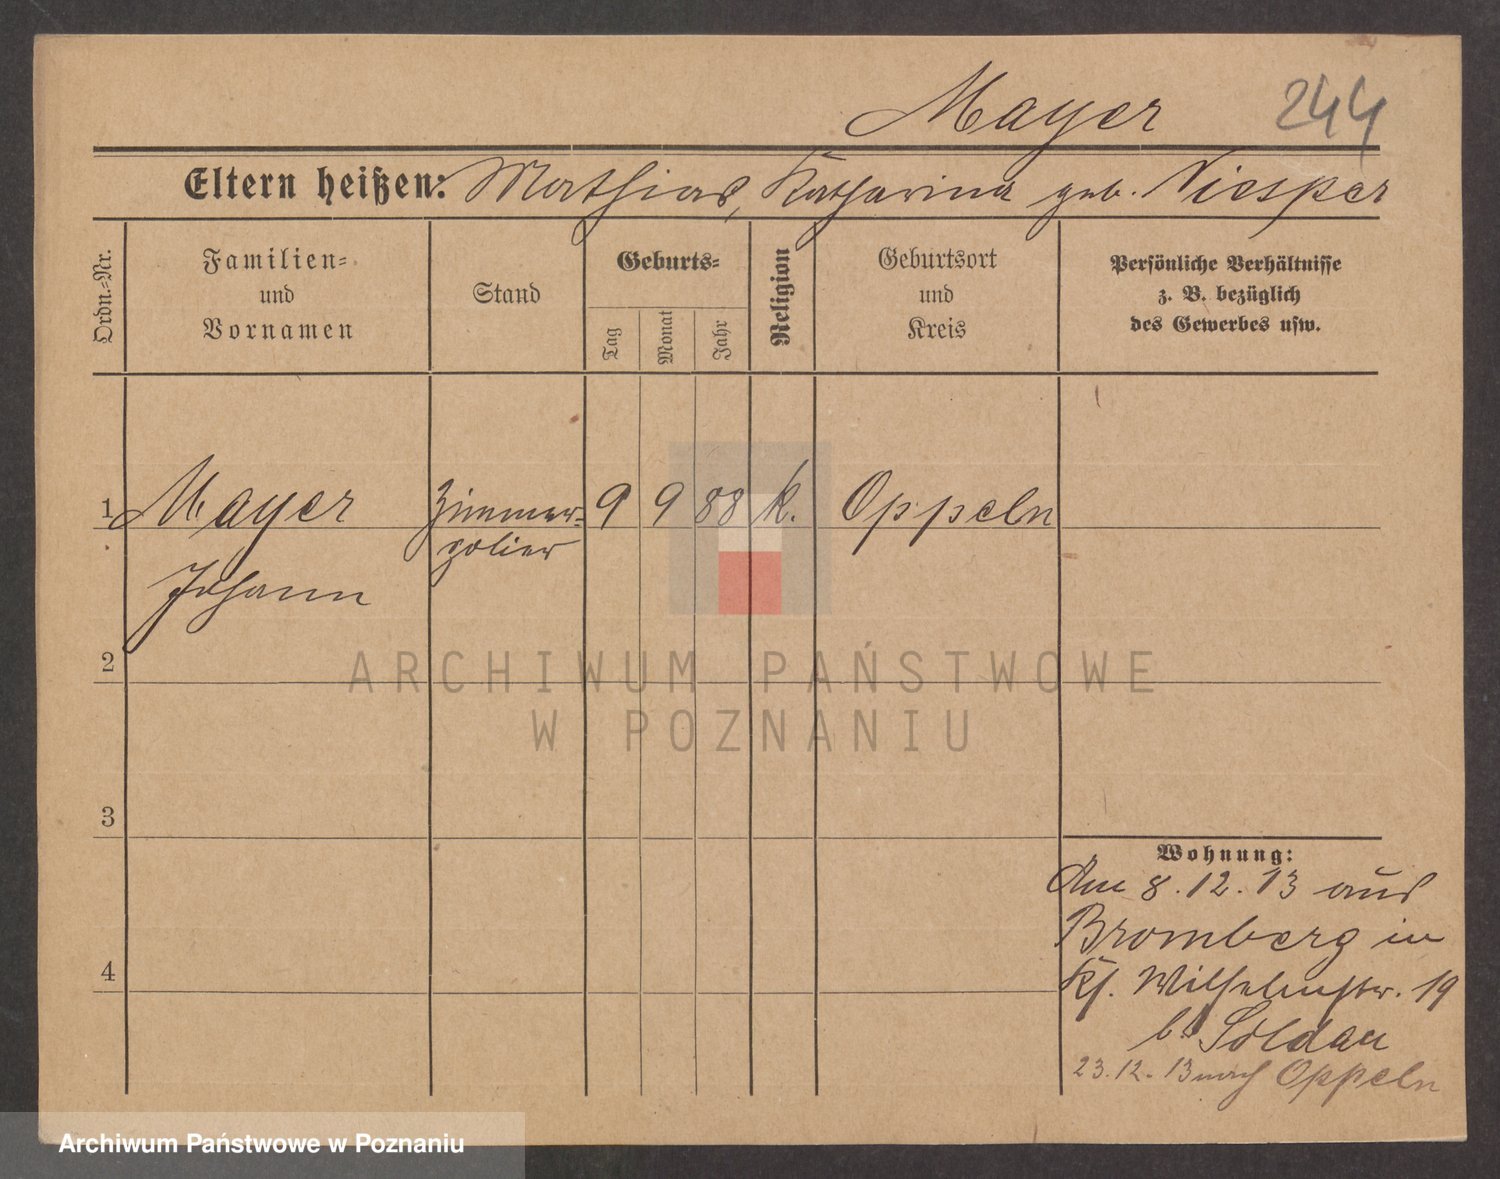 Mayer 244
Eltern heißen: Mathias, Katharina geb. Niesper
Ordn.-Nr.
Familien-
und
Vornamen
Stand
Geburts-
Tag
Monat
Jahr
Religion
Geburtsort
und
Kreis
Persönliche Verhältnisse
z. B. bezüglich
des Gewerbes usw.
1 Mayer Zimmer- 9 9 88 k. Oppeln
polier
Johann
2
ARCHIWUM PAŃSTWOWE
W POZNANIU
3
Wohnung:
Am 8.12.13 aus
Bromberg in
4
Kl. Wilhelmstr. 19
b. Soldau
23.12.13 nach Oppeln
Archiwum Państwowe w Poznaniu